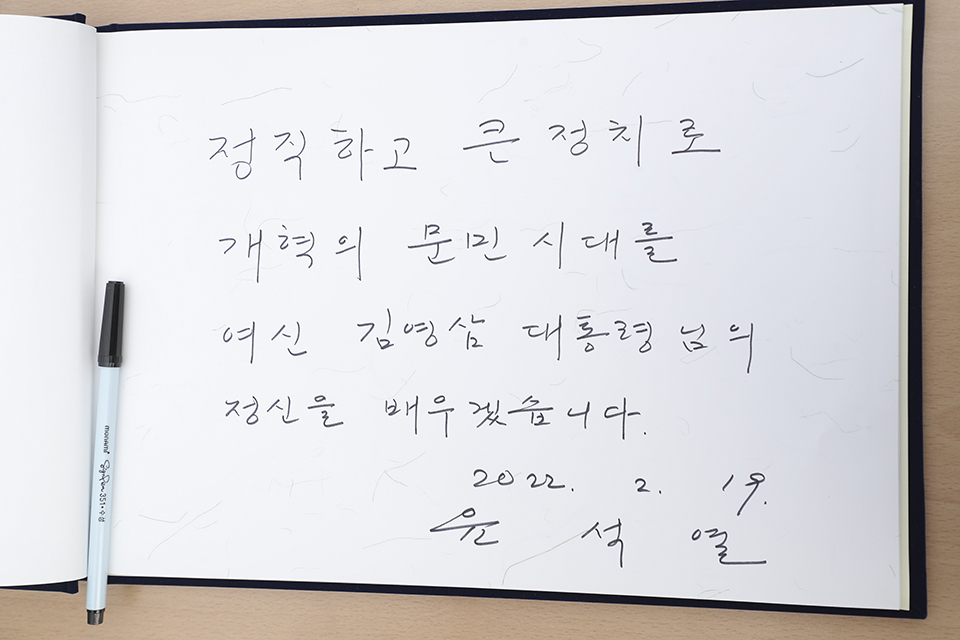 정직하고 큰 정치로
개혁의 문민 시대를
여신 김영삼 대통령님의
정신을 배우겠습니다.
2022. 2. 19.
윤 석 열
monami SignPen-351·수성